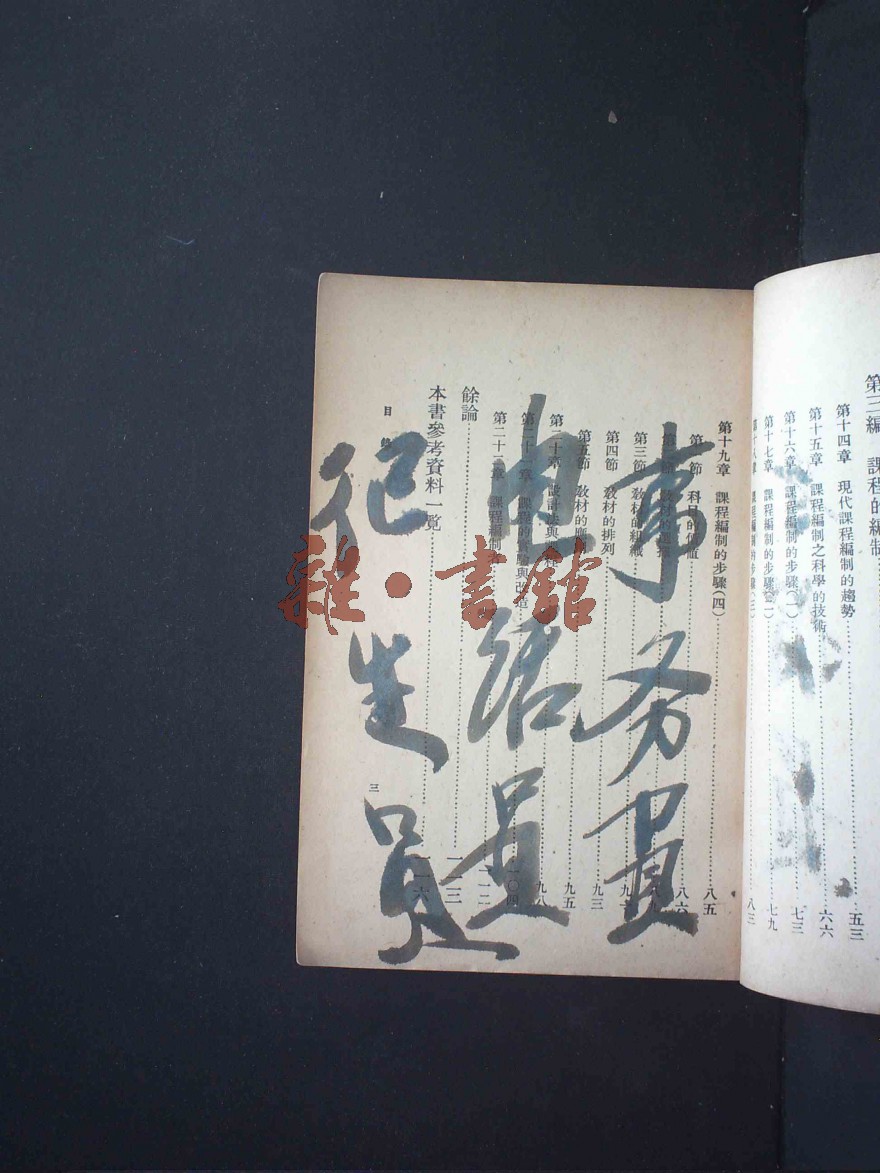 第三編 課程的編制
第十四章 現代課程編制的趨勢 五三
第十五章 課程編制之科學的技術 六六
第十六章 課程編制的步驟(一) 七三
第十七章 課程編制的步驟(二) 七九
第十八章 課程編制的步驟(三) 八三
第十九章 課程編制的步驟(四) 八五
第一節 科目的價值 八六
第三節 教材的組織
第四節 教材的排列 九三
第五節 教材的 九五
第二十章 設計法與 九八
第二十一章 課程的實驗與改造 一〇四
第二十二章 課程編制 一一二
餘論 一一三
本書參考資料一覽 一一六
目 錄
三
事务員
电话員
衛生員
雜·書館